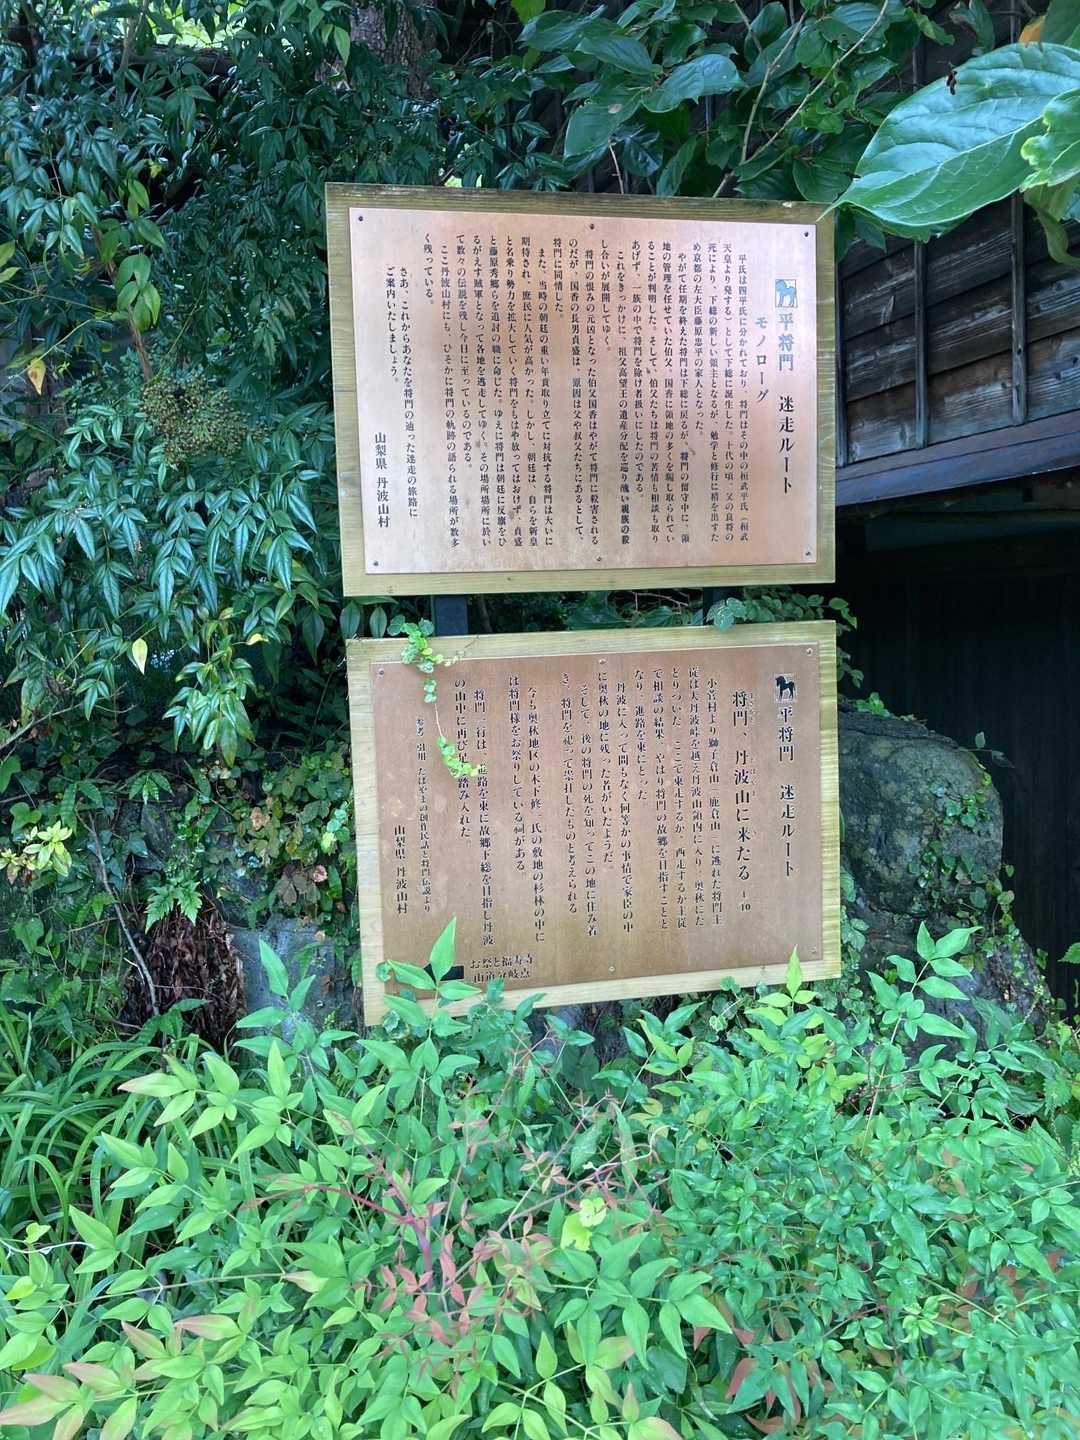 平将門 迷走ルート
モノローグ
平氏は四平氏に分かれており、将門はその中の桓武平氏(桓武
天皇より発する)として下総に誕生した。十代の頃、父の良将の
死により、下総の新しい領主となるが、勉学と修行に精を出すた
め京都の左大臣藤原忠平の家人となった。
やがて任期を終えた将門は下総に戻るが、将門の留守中に、領
地の管理を任せていた伯父、国香に領地の多くを騙し取られてい
ることが判明した。そしてい、伯父たちは将門の苦情も相談も取り
あげず、一族の中で将門を除け者扱いにしたのである。
これをきっかけに、祖父高望王の遺産分配を巡り醜い親族の殺
し合いが展開してゆく。
将門の恨みの元凶となった伯父国香はやがて将門に殺害される
のだが、国香の長男貞盛は、原因は父や叔父たちにあるとして、
将門に同情した。
また、当時の朝廷の重い年貢取り立てに対抗する将門は大いに
期待され、庶民に人気が高かった。しかし、朝廷は、自らを新皇
と名乗り勢力を拡大していく将門をもはや放ってはおけず、貞盛
と藤原秀郷らを追討の職に命じた。ゆえに将門は朝廷に反旗をひ
るがえす賊軍となって各地を逃走してゆく。その場所場所に於い
て数々の伝説を残し今日に至っているのである。
ここ丹波山村にも、ひそかに将門の軌跡の語られる場所が数多
く残っている。
さあ、これからあなたを将門の辿った迷走の旅路に
ご案内いたしましょう。
山梨県 丹波山村
平将門 迷走ルート
将門、丹波山に来たる 1-10
小菅村より獅子倉山(鹿倉山)に逃れた将門主
従は大丹波峠を越え丹波山領内に入り、奥秋にた
どりついた。ここで東走するか、西走するか主従
で相談の結果、やはり将門の故郷を目指すことと
なり、進路を東にとった。
丹波に入って間もなく何等かの事情で家臣の中
に奥秋の地に残った者がいたようだ。
そして、後の将門の死を知ってこの地に住み着
き、将門を祀って崇拝したものと考えられる。
今も奥秋地区の木下修一氏の敷地の杉林の中に
は将門様をお祭りしている祠がある。
将門一行は、進路を東に故郷下総を目指し丹波
の山中に再び足を踏み入れた。
参考、引用 たばやまの創作民話と将門伝説より
山梨県 丹波山村
お祭と福寿寺
山道分岐点